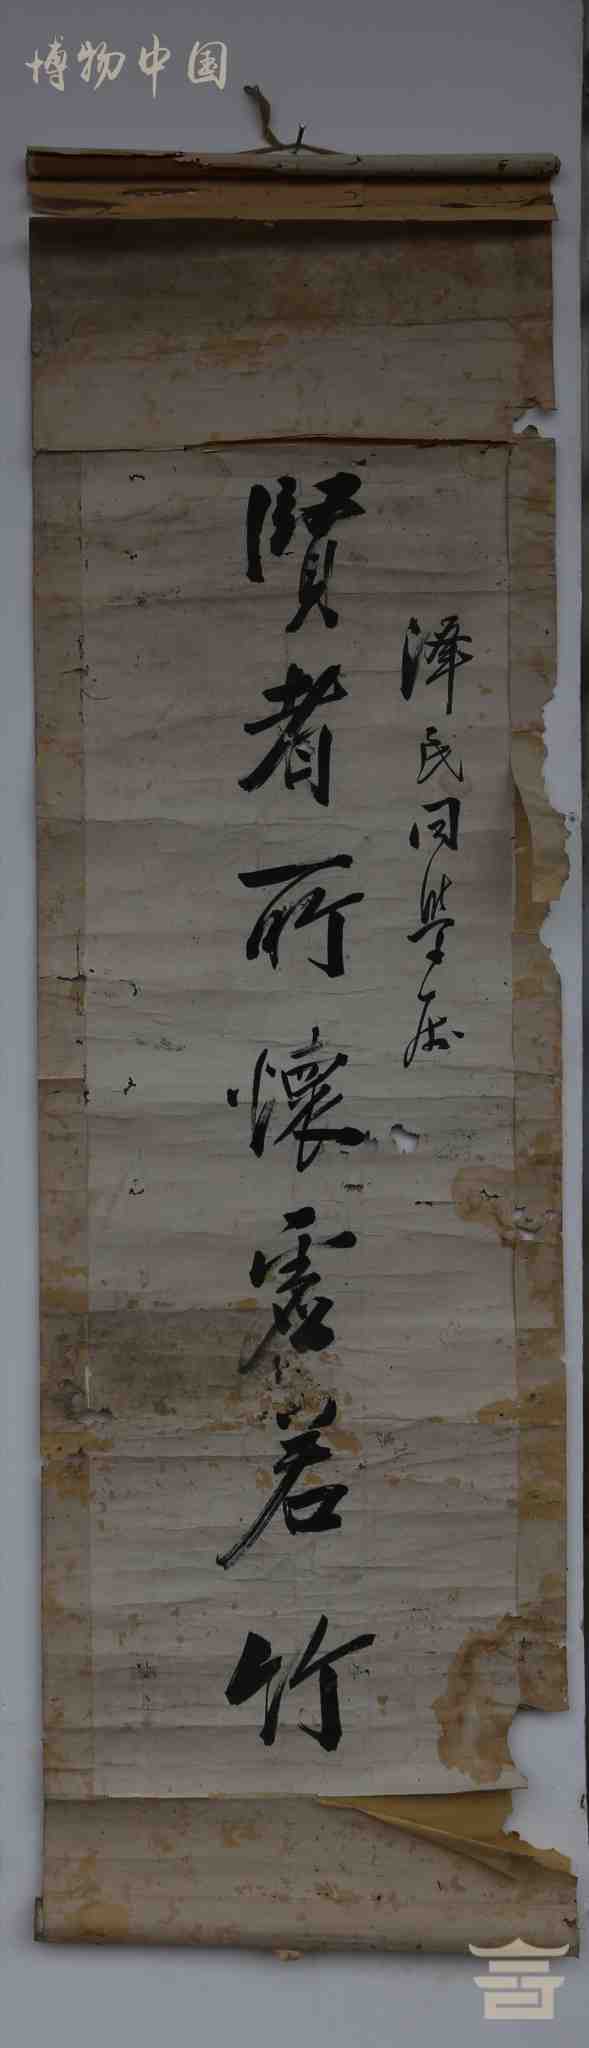 博物中国
泽民同學属
賢者所懷虚若竹